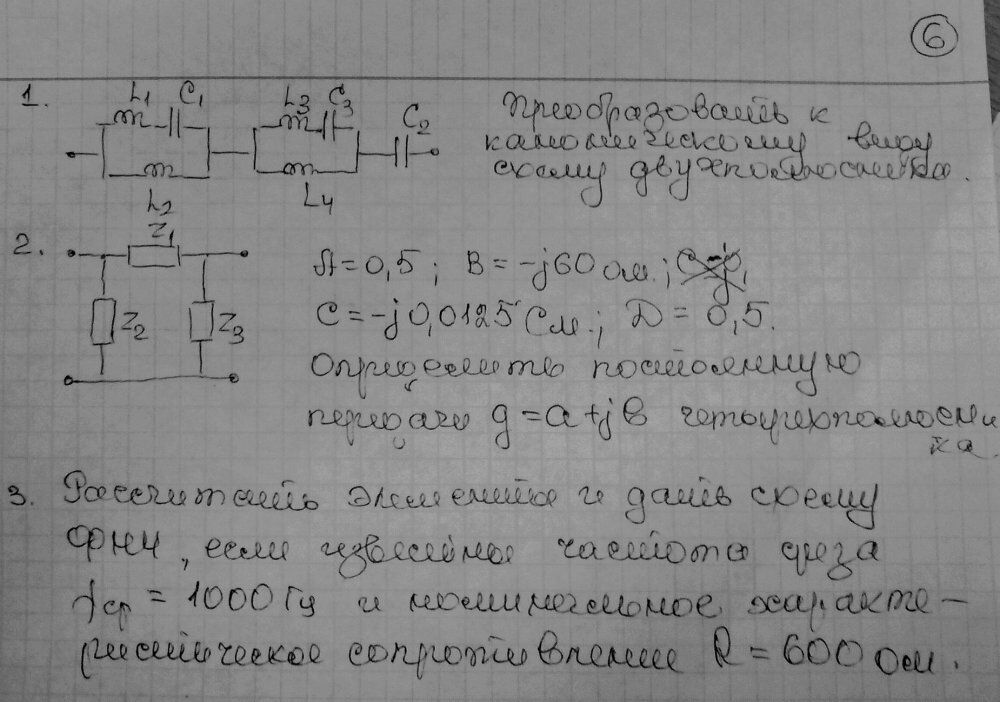 6
1.
L1 C1 L3 C3 C2
L2 L4
Преобразовать к
каноническому виду
схему двухполюсника.
2.
Z1
Z2 Z3
A = 0,5; B = -j60 Ом;
C = -j0,0125 См; D = 0,5.
Определить постоянную
передачи g = a + jb четырехполюсни
ка.
3. Рассчитать элементы и дать схему
ФНЧ, если известна частота среза
fср = 1000 Гц и номинальное характе-
ристическое сопротивление R = 600 Ом.